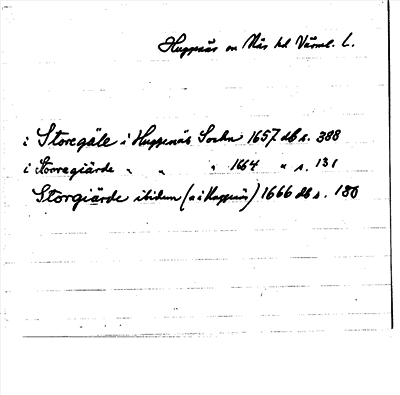 Huggenäs sn Näs hd Värml. L.
i Storegäle i Huggenäs Sockn 1657 db s. 388
i Storregiärde " " " 1664 " s. 131
Storgiärde ibidem (ɔ: i Huggenäs) 1666 db s. 180